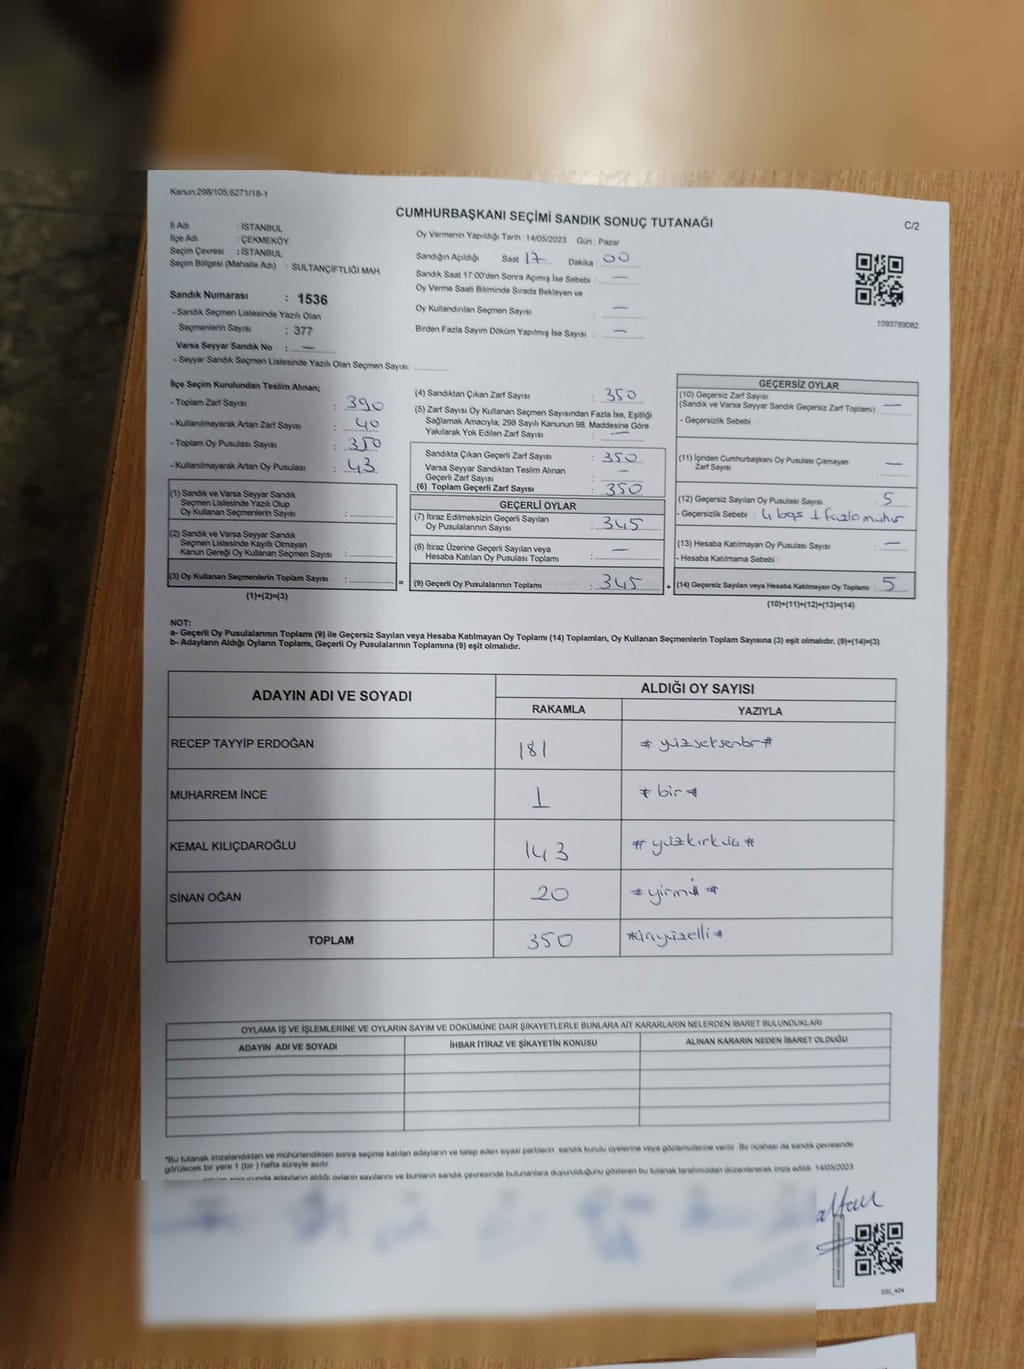 Kanun;298/105;6271/18-1
CUMHURBAŞKANI SEÇİMİ SANDIK SONUÇ TUTANAĞI
C/2
İl Adı : İSTANBUL
İlçe Adı : ÇEKMEKÖY
Seçim Çevresi : İSTANBUL
Seçim Bölgesi (Mahalle Adı) : SULTANÇİFTLİĞİ MAH.
Sandık Numarası : 1536
- Sandık Seçmen Listesinde Yazılı Olan
Seçmenlerin Sayısı : 377
Varsa Seyyar Sandık No : —
- Seyyar Sandık Seçmen Listesinde Yazılı Olan Seçmen Sayısı:
Oy Vermenin Yapıldığı Tarih : 14/05/2023 Gün : Pazar
Sandığın Açıldığı Saat 17 Dakika : 00
Sandık Saat 17:00'den Sonra Açımış İse Sebebi : —
Oy Verme Saati Bitiminde Sırada Bekleyen ve
Oy Kullandırılan Seçmen Sayısı : —
Birden Fazla Sayım Döküm Yapılmış İse Sayısı : —
1093789082
İlçe Seçim Kurulundan Teslim Alınan;
- Toplam Zarf Sayısı : 390
- Kullanılmayarak Artan Zarf Sayısı : 40
- Toplam Oy Pusulası Sayısı : 350
- Kullanılmayarak Artan Oy Pusulası : 43
(1) Sandık ve Varsa Seyyar Sandık
Seçmen Listesinde Yazılı Olup
Oy Kullanan Seçmenlerin Sayısı :
(2) Sandık ve Varsa Seyyar Sandık
Seçmen Listesinde Kayıtlı Olmayan
Kanun Gereği Oy Kullanan Seçmen Sayısı :
(3) Oy Kullanan Seçmenlerin Toplam Sayısı : =
(1)+(2)=(3)
(4) Sandıktan Çıkan Zarf Sayısı : 350
(5) Zarf Sayısı Oy Kullanan Seçmen Sayısından Fazla İse, Eşitliği
Sağlamak Amacıyla; 298 Sayılı Kanunun 98. Maddesine Göre
Yakılarak Yok Edilen Zarf Sayısı : —
Sandıkta Çıkan Geçerli Zarf Sayısı : 350
Varsa Seyyar Sandıktan Teslim Alınan
Geçerli Zarf Sayısı : —
(6) Toplam Geçerli Zarf Sayısı : 350
GEÇERLİ OYLAR
(7) İtiraz Edilmeksizin Geçerli Sayılan
Oy Pusulalarının Sayısı : 345
(8) İtiraz Üzerine Geçerli Sayılan veya
Hesaba Katılan Oy Pusulası Toplamı : —
(9) Geçerli Oy Pusulalarının Toplamı : 345 +
GEÇERSİZ OYLAR
(10) Geçersiz Zarf Sayısı
(Sandık ve Varsa Seyyar Sandık Geçersiz Zarf Toplamı) —
- Geçersizlik Sebebi :
(11) İçinden Cumhurbaşkanı Oy Pusulası Çıkmayan
Zarf Sayısı —
(12) Geçersiz Sayılan Oy Pusulası Sayısı 5
- Geçersizlik Sebebi : 4 boş 1 fazla mühür
(13) Hesaba Katılmayan Oy Pusulası Sayısı : —
- Hesaba Katılmama Sebebi :
(14) Geçersiz Sayılan veya Hesaba Katılmayan Oy Toplamı : 5
(10)+(11)+(12)+(13)=(14)
NOT:
a- Geçerli Oy Pusulalarının Toplamı (9) ile Geçersiz Sayılan veya Hesaba Katılmayan Oy Toplamı (14) Toplamları, Oy Kullanan Seçmenlerin Toplam Sayısına (3) eşit olmalıdır. (9)+(14)=(3)
b- Adayların Aldığı Oyların Toplamı, Geçerli Oy Pusulalarının Toplamına (9) eşit olmalıdır.
ADAYIN ADI VE SOYADI ALDIĞI OY SAYISI
RAKAMLA YAZIYLA
RECEP TAYYİP ERDOĞAN 181 # yüzseksenbir #
MUHARREM İNCE 1 # bir #
KEMAL KILIÇDAROĞLU 143 # yüzkırküç #
SİNAN OĞAN 20 # yirmi #
TOPLAM 350 # üçyüzelli #
OYLAMA İŞ VE İŞLEMLERİNE VE OYLARIN SAYIM VE DÖKÜMÜNE DAİR ŞİKAYETLERLE BUNLARA AİT KARARLARIN NELERDEN İBARET BULUNDUKLARI
ADAYIN ADI VE SOYADI İHBAR İTİRAZ VE ŞİKAYETİN KONUSU ALINAN KARARIN NEDEN İBARET OLDUĞU
*Bu tutanak imzalandıktan ve mühürlendikten sonra seçime katılan adayların ve talep eden siyasi partilerin sandık kurulu üyelerine veya gözlemcilerine verilir. Bir nüshası da sandık çevresinde
görülecek bir yere 1 (bir ) hafta süreyle asılır.
sonucunda adayların aldığı oyların sayılarını ve bunların sandık çevresinde bulunanlara duyurulduğunu gösteren bu tutanak tarafımızdan düzenlenerek imza edildi. 14/05/2023